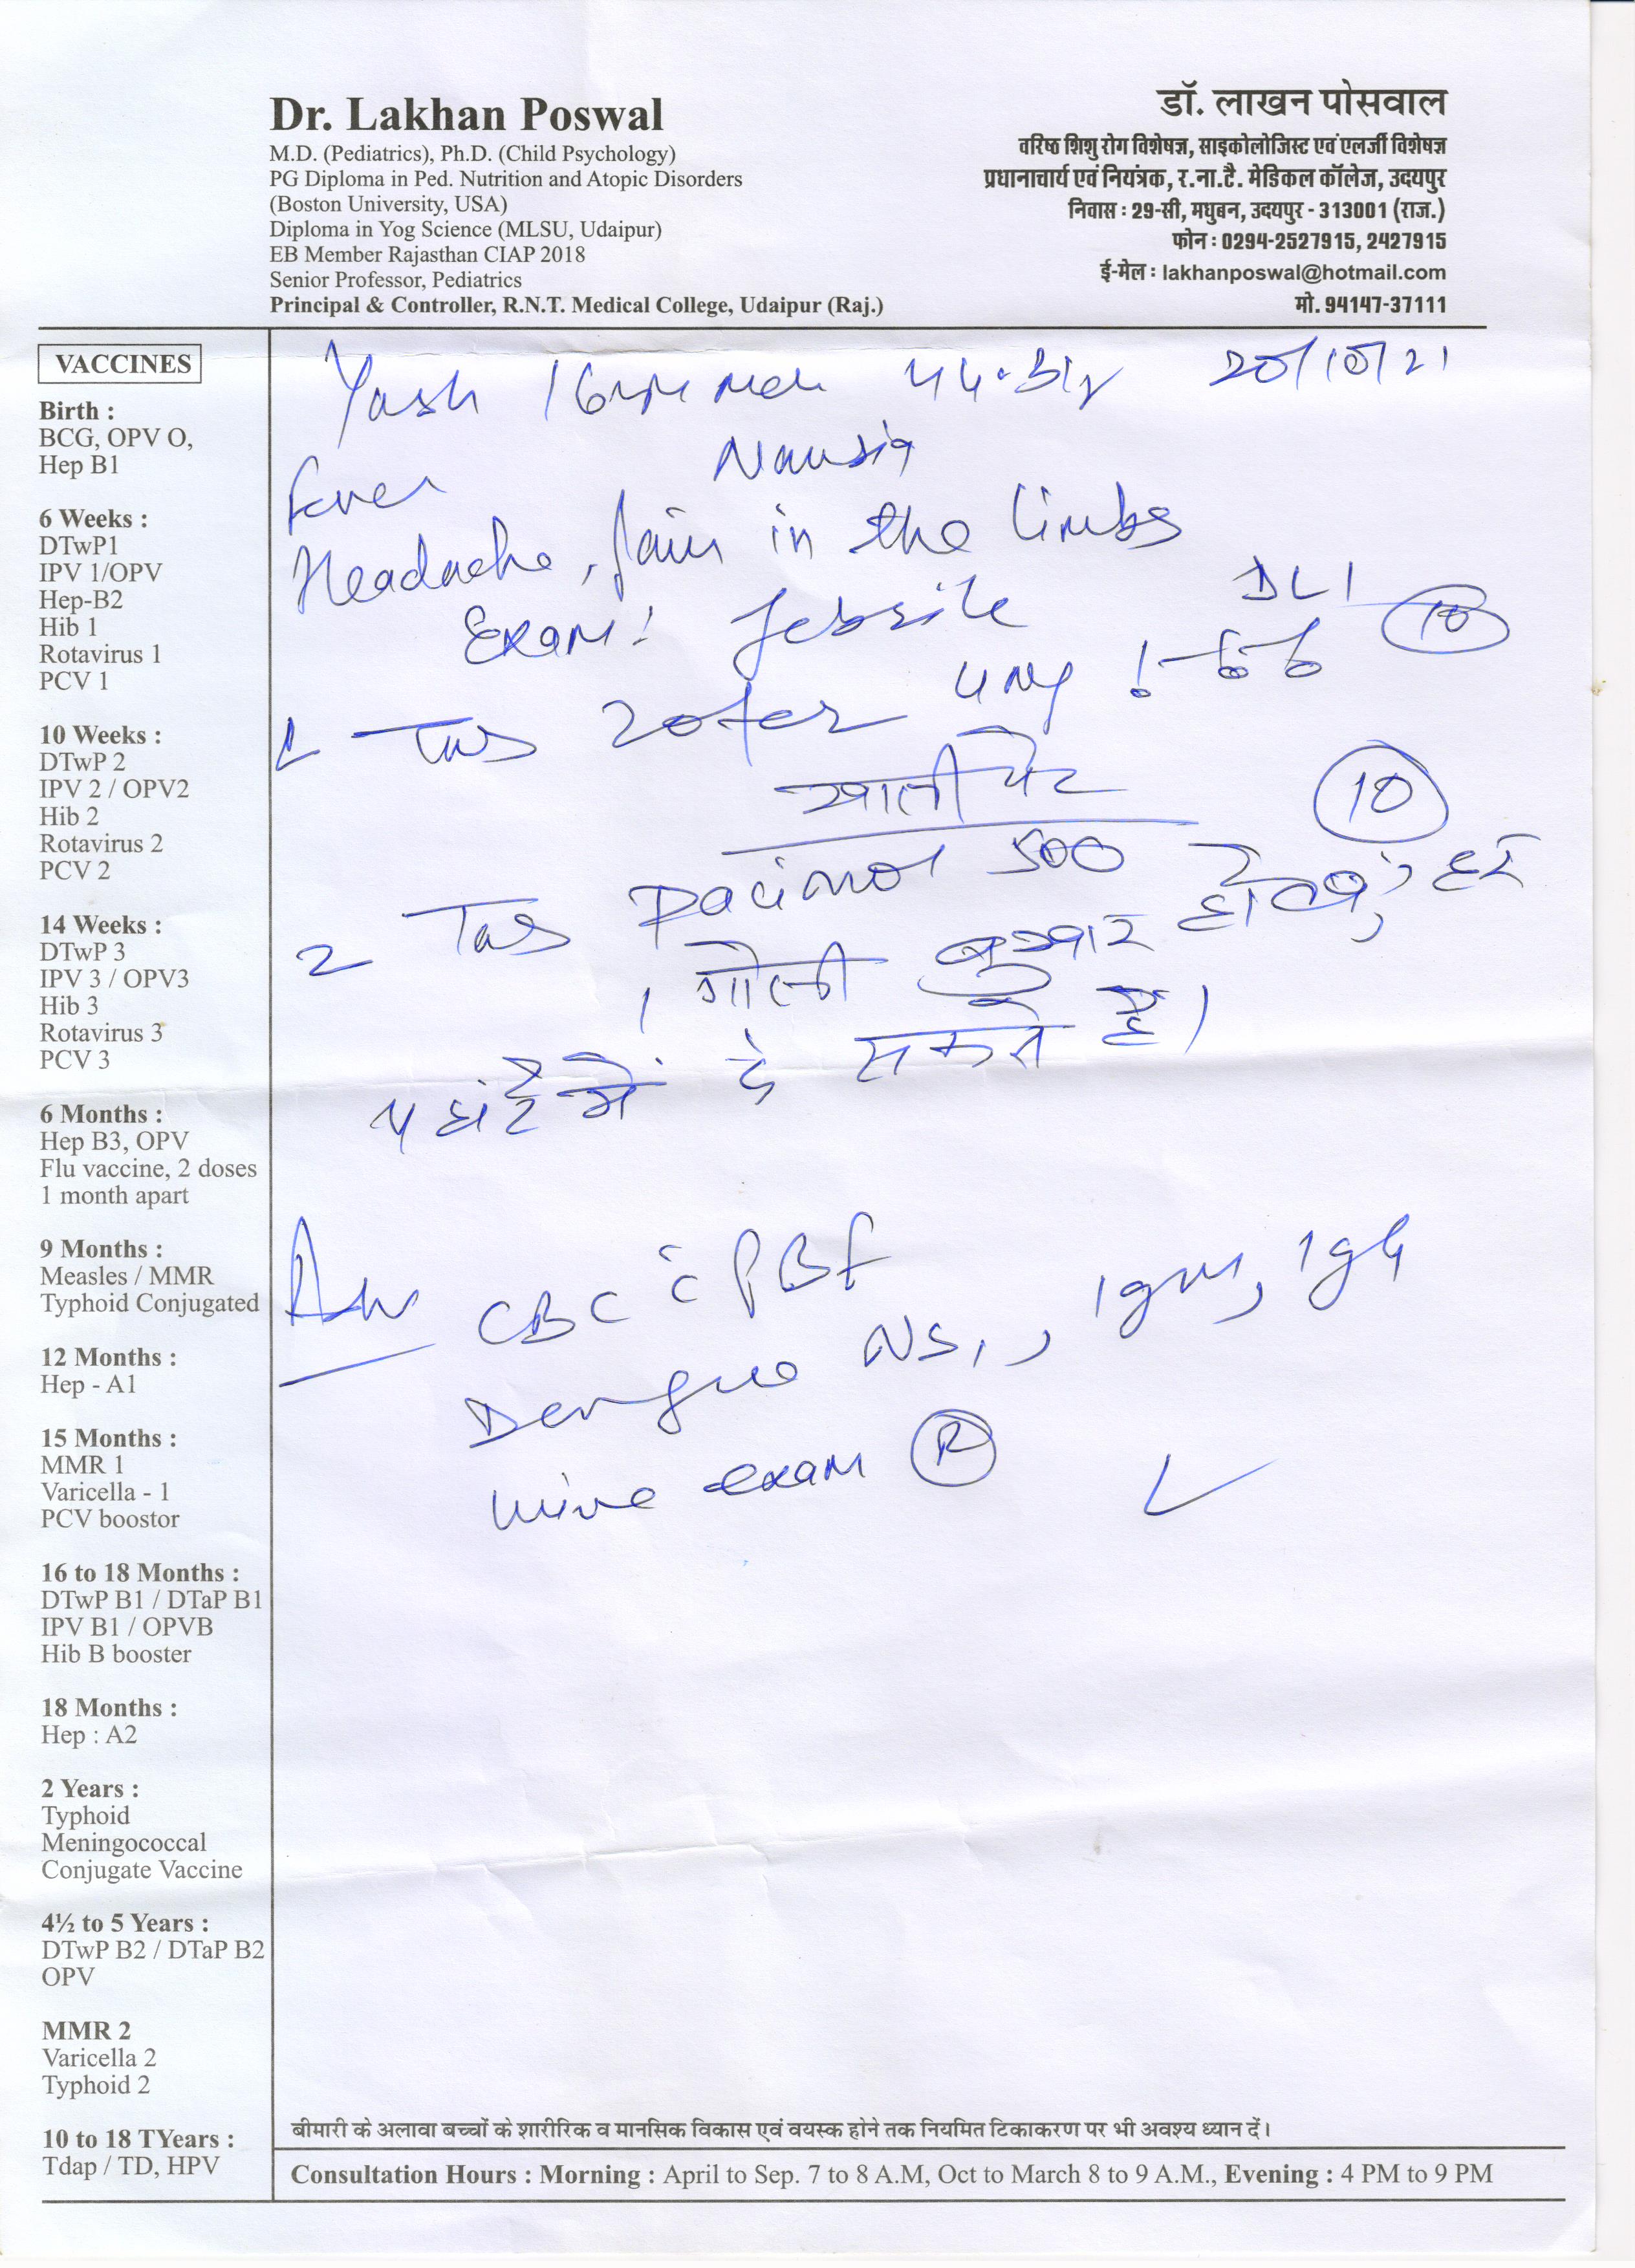 Dr. Lakhan Poswal
M.D. (Pediatrics), Ph.D. (Child Psychology)
PG Diploma in Ped. Nutrition and Atopic Disorders
(Boston University, USA)
Diploma in Yog Science (MLSU, Udaipur)
EB Member Rajasthan CIAP 2018
Senior Professor, Pediatrics
Principal & Controller, R.N.T. Medical College, Udaipur (Raj.)
डॉ. लाखन पोसवाल
वरिष्ठ शिशु रोग विशेषज्ञ, साइकोलोजिस्ट एवं एलर्जी विशेषज्ञ
प्रधानाचार्य एवं नियंत्रक, र.ना.टै. मेडिकल कॉलेज, उदयपुर
निवास : 29-सी, मधुबन, उदयपुर - 313001 (राज.)
फोन : 0294-2527915, 2427915
ई-मेल : lakhanposwal@hotmail.com
मो. 94147-37111
VACCINES
Birth :
BCG, OPV O,
Hep B1
6 Weeks :
DTwP1
IPV 1/OPV
Hep-B2
Hib 1
Rotavirus 1
PCV 1
10 Weeks :
DTwP 2
IPV 2 / OPV2
Hib 2
Rotavirus 2
PCV 2
14 Weeks :
DTwP 3
IPV 3 / OPV3
Hib 3
Rotavirus 3
PCV 3
6 Months :
Hep B3, OPV
Flu vaccine, 2 doses
1 month apart
9 Months :
Measles / MMR
Typhoid Conjugated
12 Months :
Hep - A1
15 Months :
MMR 1
Varicella - 1
PCV boostor
16 to 18 Months :
DTwP B1 / DTaP B1
IPV B1 / OPVB
Hib B booster
18 Months :
Hep : A2
2 Years :
Typhoid
Meningococcal
Conjugate Vaccine
4½ to 5 Years :
DTwP B2 / DTaP B2
OPV
MMR 2
Varicella 2
Typhoid 2
10 to 18 TYears :
Tdap / TD, HPV
Yash 20/10/21
Fever Nausia
Headache, Pain in the limbs
Exam: febrile
1 Tab Zofer 4 mg 10
खाली पेट
2 Tab Pacimol 500 10
1 गोली बुखार होने पर, हर
4 घंटे में दे सकते हैं।
Adv CBC c̄ PBF
Dengue NS1, IgM, IgG
Urine exam R
बीमारी के अलावा बच्चों के शारीरिक व मानसिक विकास एवं वयस्क होने तक नियमित टिकाकरण पर भी अवश्य ध्यान दें।
Consultation Hours : Morning : April to Sep. 7 to 8 A.M, Oct to March 8 to 9 A.M., Evening : 4 PM to 9 PM